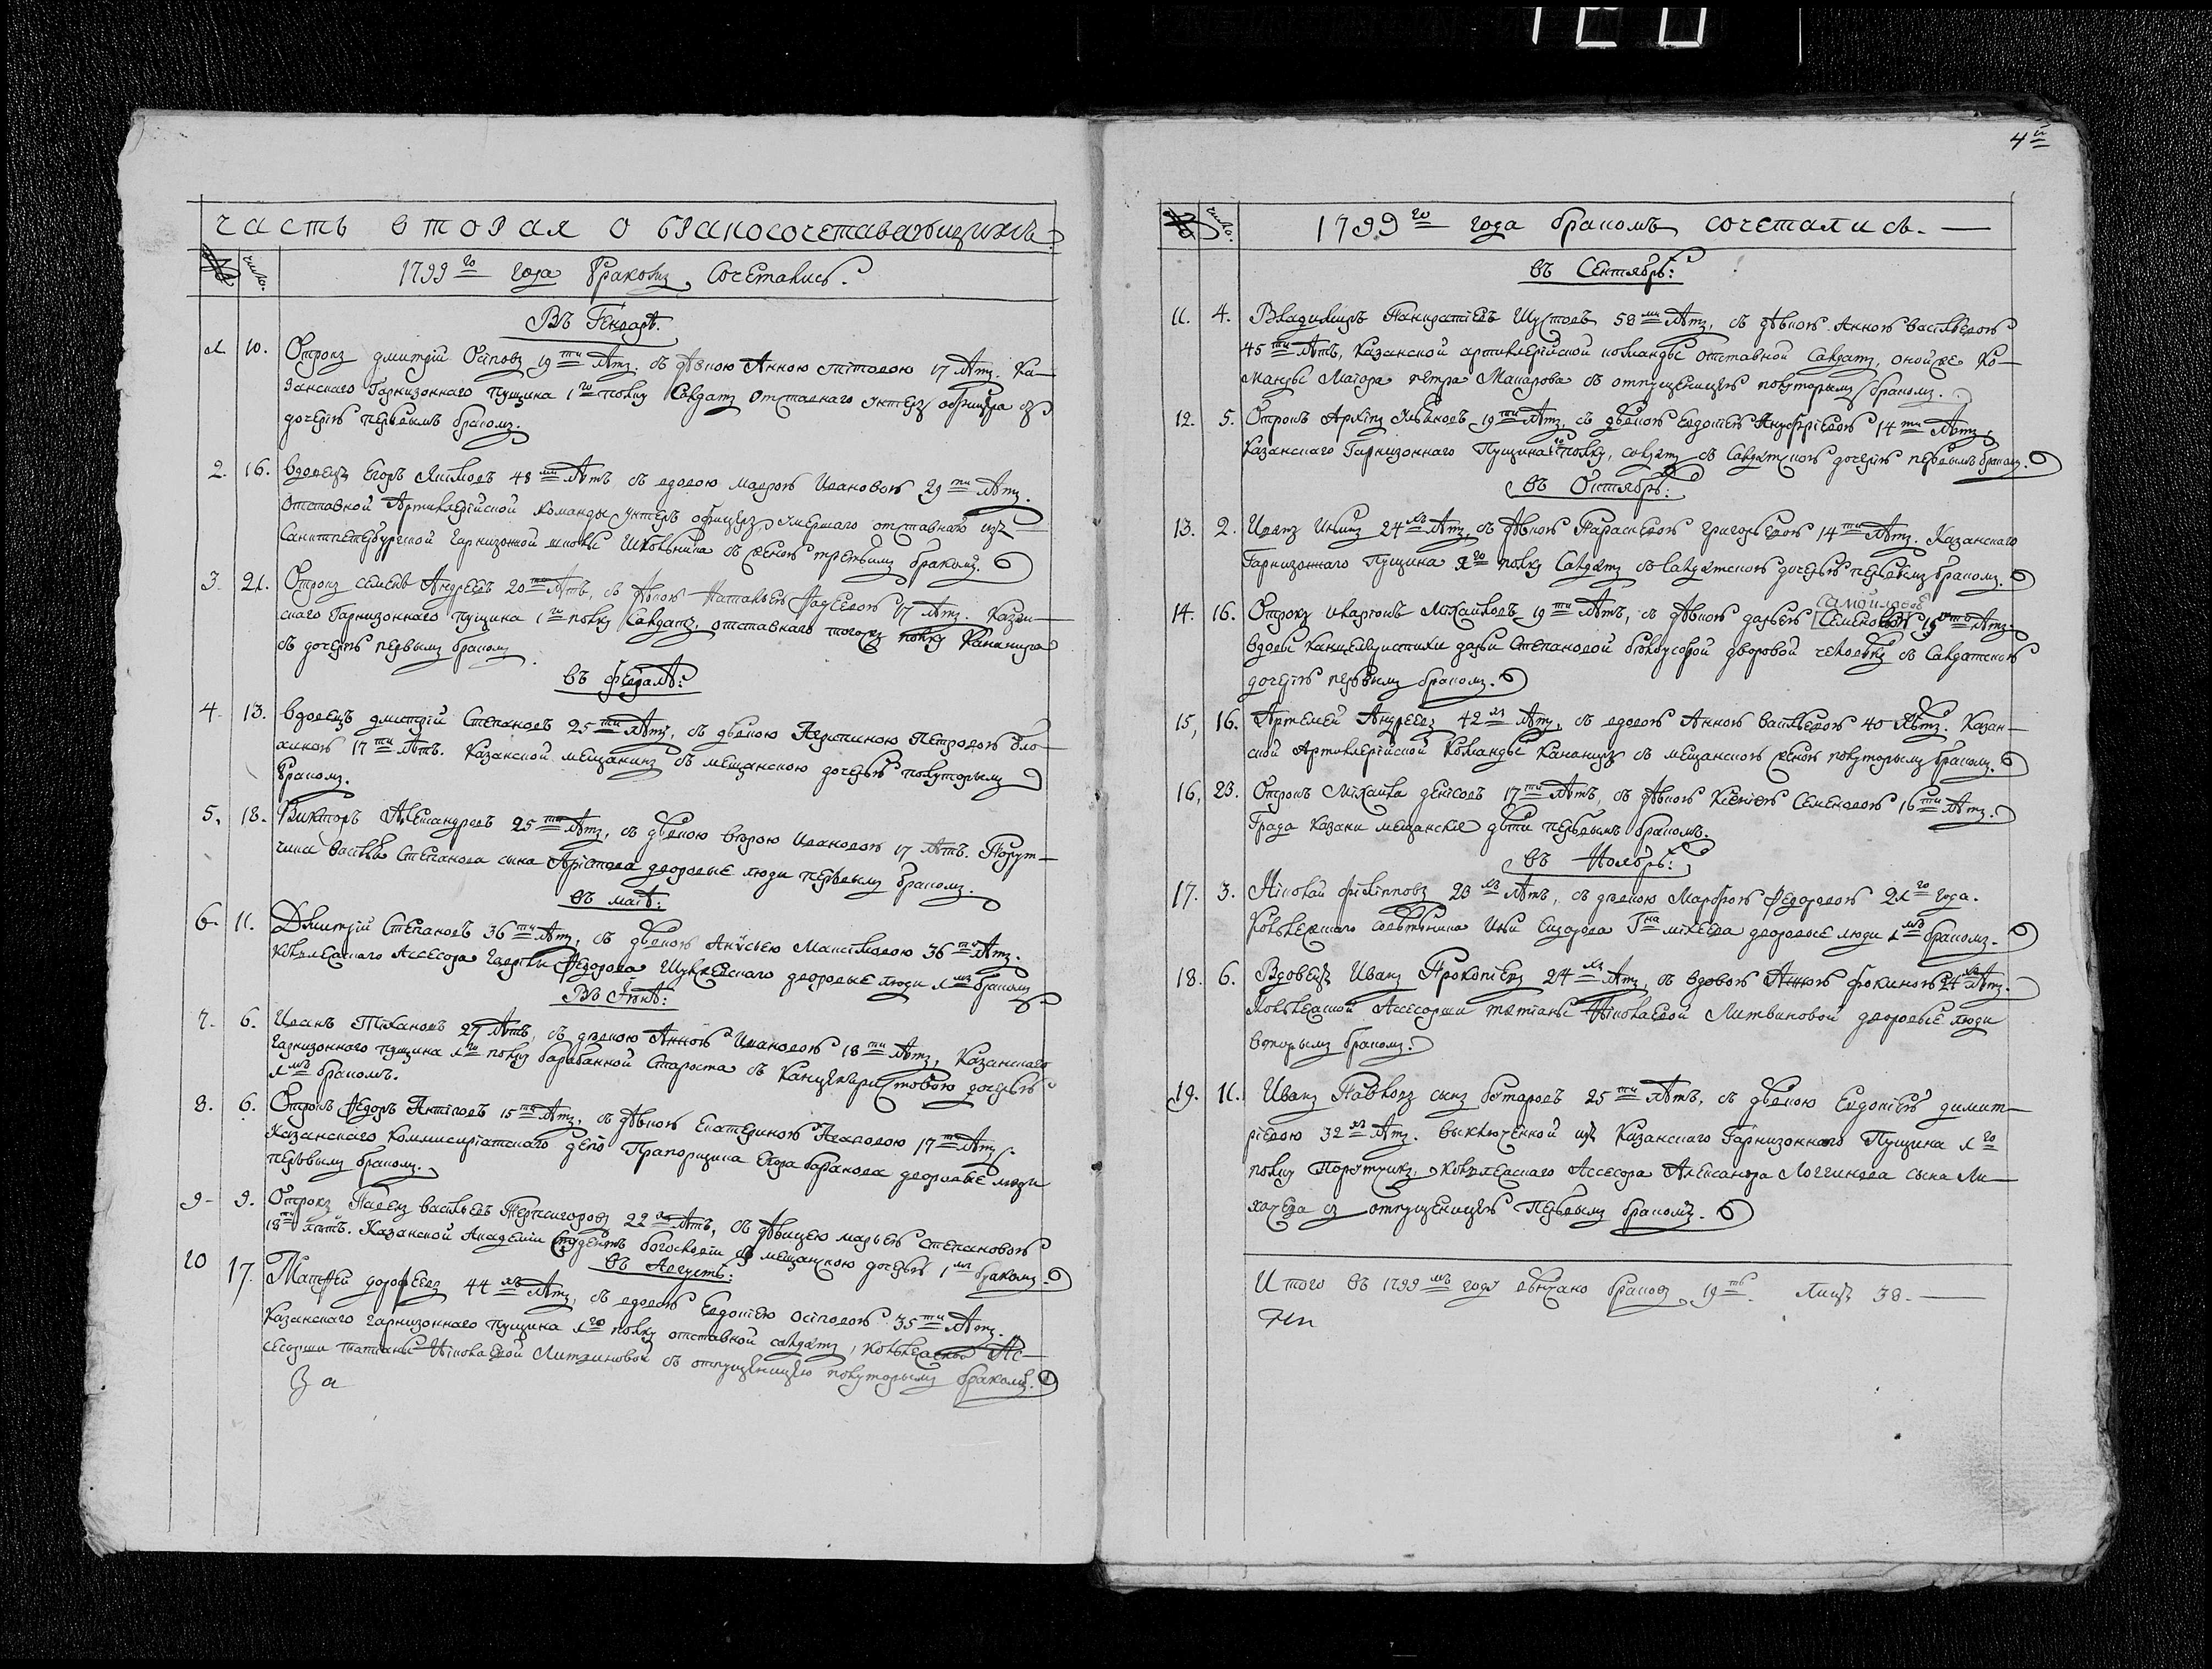 часть вторая о бракосочетавающихсѧ
№ число. 1799го года бракомъ сочетались.
Въ Генварѣ.
1. 10. Отрокъ дмитрїй Осиповъ 19ти лѣтъ. съ дѣвкою Анною титовою 17 лѣтъ. Ка-
занскаго Гарнизоннаго Пущина 1го полку Салдатъ отставнаго унтеръ офицера съ
дочерью первымъ бракомъ.
2. 16. Вдовецъ Егоръ 48ми лѣтъ съ вдовою маврою Ивановою 29ти лѣтъ.
Отставной Артиллерїйской команды унтеръ офицеръ, умершаго отставнаго изъ
Санктпетербургской гарнизонной школы Школьника съ женою третьимъ бракомъ.
3. 21. Отрокъ семенъ Андреевъ 20ти лѣтъ, съ дѣвкою Натальею Фадеевою 17 лѣтъ. Казан-
скаго Гарнизоннаго пущина 1го полку Салдатъ, отставнаго тогожъ полку Кананира
съ дочерью первымъ бракомъ.
въ февралѣ:
4. 13. Вдовецъ дмитрїй Степановъ 25ти лѣтъ, съ дѣвкою Устиною Петровою
17ти лѣтъ. Казанской мещанинъ съ мещанскою дочерью полуторымъ
бракомъ.
5. 18. Викторъ Александровъ 25ти лѣтъ, съ дѣвкою вѣрою Ивановою 17 лѣтъ. Порут-
чика Василья Степанова сына Арїстова дворовые люди первымъ бракомъ.
въ маѣ:
6. 11. Дмитрїй Степановъ 36ти лѣтъ, съ дѣвкою Анисьею Максимовою 36ти лѣтъ.
Коллежскаго Ассесора Гаврїлы Федорова дворовые люди 1мъ бракомъ
Въ Iюлѣ:
7. 6. Иванъ Тихановъ 27 лѣтъ, съ дѣвкою Анною Ивановою 18ти лѣтъ, Казанскаго
Гарнизоннаго пущина 1го полку барабанной Староста съ Канцеляристовою дочерью
1мъ бракомъ.
8. 6. Отрокъ Федоръ Антиповъ 15ти лѣтъ, съ дѣвкою Екатериною Агаповою 17ти лѣтъ.
Казанскаго Коммисарїатскаго депо Прапорщика Егора баранова дворовые люди
первымъ бракомъ.
9. 9. Отрокъ Павелъ васильевъ 22хъ лѣтъ, съ дѣвицею марьею Степановою
18ти лѣтъ. Казанской Академїи студентъ богословїи съ мещанскою дочерью 1мъ бракомъ.
въ Августѣ:
10 17. Матфей дорофеевъ 44хъ лѣтъ, съ вдовою Евдокїею Осиповою 35ти лѣтъ.
Казанскаго гарнизоннаго пущина 1го полку отставной салдатъ, коллежской Ас-
сесорши татьяны Николаевой Литвиновой съ отпущеницею полуторымъ бракомъ.
За
4й
№ число. 1799го года бракомъ сочетались.
въ Сентябрѣ:
11. 4. Владимиръ Панкратїевъ Шустовъ 58ми лѣтъ, съ дѣвкою Анною васильевою
45ти лѣтъ, Казанской артиллерїйской команды отставной Салдатъ, онойже Ко-
манды Маїора петра Макарова съ отпущеницею полуторымъ бракомъ.
12. 5. Отрокъ Архипъ Ульяновъ 19ти лѣтъ, съ дѣвкою Евдокїею Ануфрїевою 14ти лѣтъ
Казанскаго Гарнизоннаго Пущина 1го полку, салдатъ съ Салдатскою дочерью первымъ бракомъ.
въ Октябрѣ:
13. 2. Иванъ 24хъ лѣтъ, съ дѣвкою Параскевою григорьевою 14ти лѣтъ. Казанскаго
Гарнизоннаго Пущина 1го полку Салдатъ съ Салдатскою дочерью первымъ бракомъ.
Самойловою
14. 16. Отрокъ Михайловъ 19ти лѣтъ, съ дѣвкою дарьею Семеновой 15ти лѣтъ
вдовы Канцеляристки дарьи Степановой дворовой человѣкъ съ Салдатскою
дочерью первымъ бракомъ.
15, 16. Артемей Андреевъ 42хъ лѣтъ, съ вдовою Анною васильевою 40 лѣтъ. Казан-
ской Артиллерїйской Команды Кананиръ съ мещанскою женою полуторымъ бракомъ.
16, 23. Отрокъ Михайла денисовъ 17ти лѣтъ, съ дѣвкою Ксенїею Семеновою 16ти лѣтъ.
Града Казани мещанскїе дѣти первымъ бракомъ.
въ Ноябрѣ:
17. 3. Николай филипповъ 23хъ лѣтъ, съ дѣвкою Марфою Федоровою 21го года.
Коллежскаго совѣтника Ильи Сидорова Гна михѣева дворовые люди 1мъ бракомъ.
18. 6. Вдовецъ Иванъ Прокопїевъ 24хъ лѣтъ, съ вдовою Анною фокиною 24хъ лѣтъ.
Коллежской Ассесорши татїаны Николаевой Литвиновой дворовые люди
вторымъ бракомъ.
19. 11. Иванъ Павловъ сынъ бутаровъ 25ти лѣтъ, съ дѣвкою Евдокїею димит-
рїевою 32хъ лѣтъ. Выключенной изъ Казанскаго Гарнизоннаго Пущина 1го
полку Порутчикъ, Коллежскаго Ассесора Александра Логгинова сына Ли-
хачева съ отпущеницею Первымъ бракомъ.
Итого въ 1799мъ году вѣнчано браковъ 19ть. Лицъ 38.